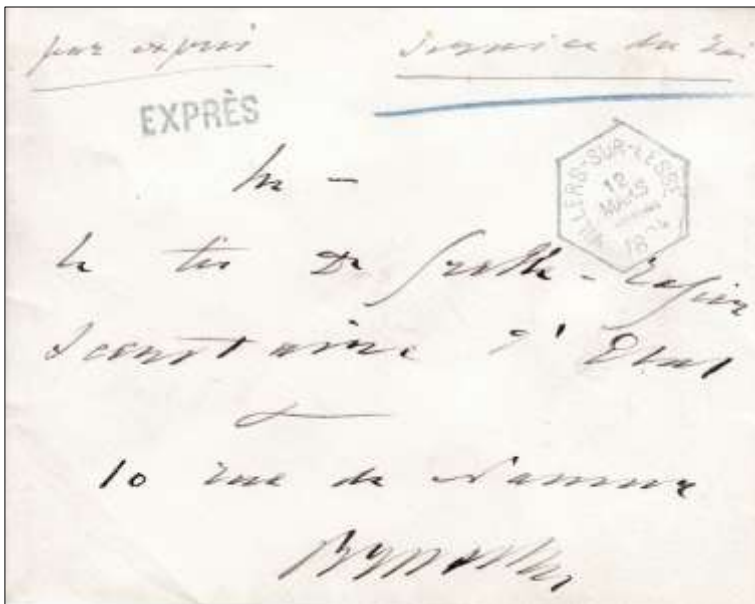 par exprès
Service du Roi
EXPRÈS
VILLERS-SUR-LESSE
12
MARS
Mr -
le Cte de Grelle-Rogier
Secrétaire d'Etat
10 rue de Namur
Bruxelles